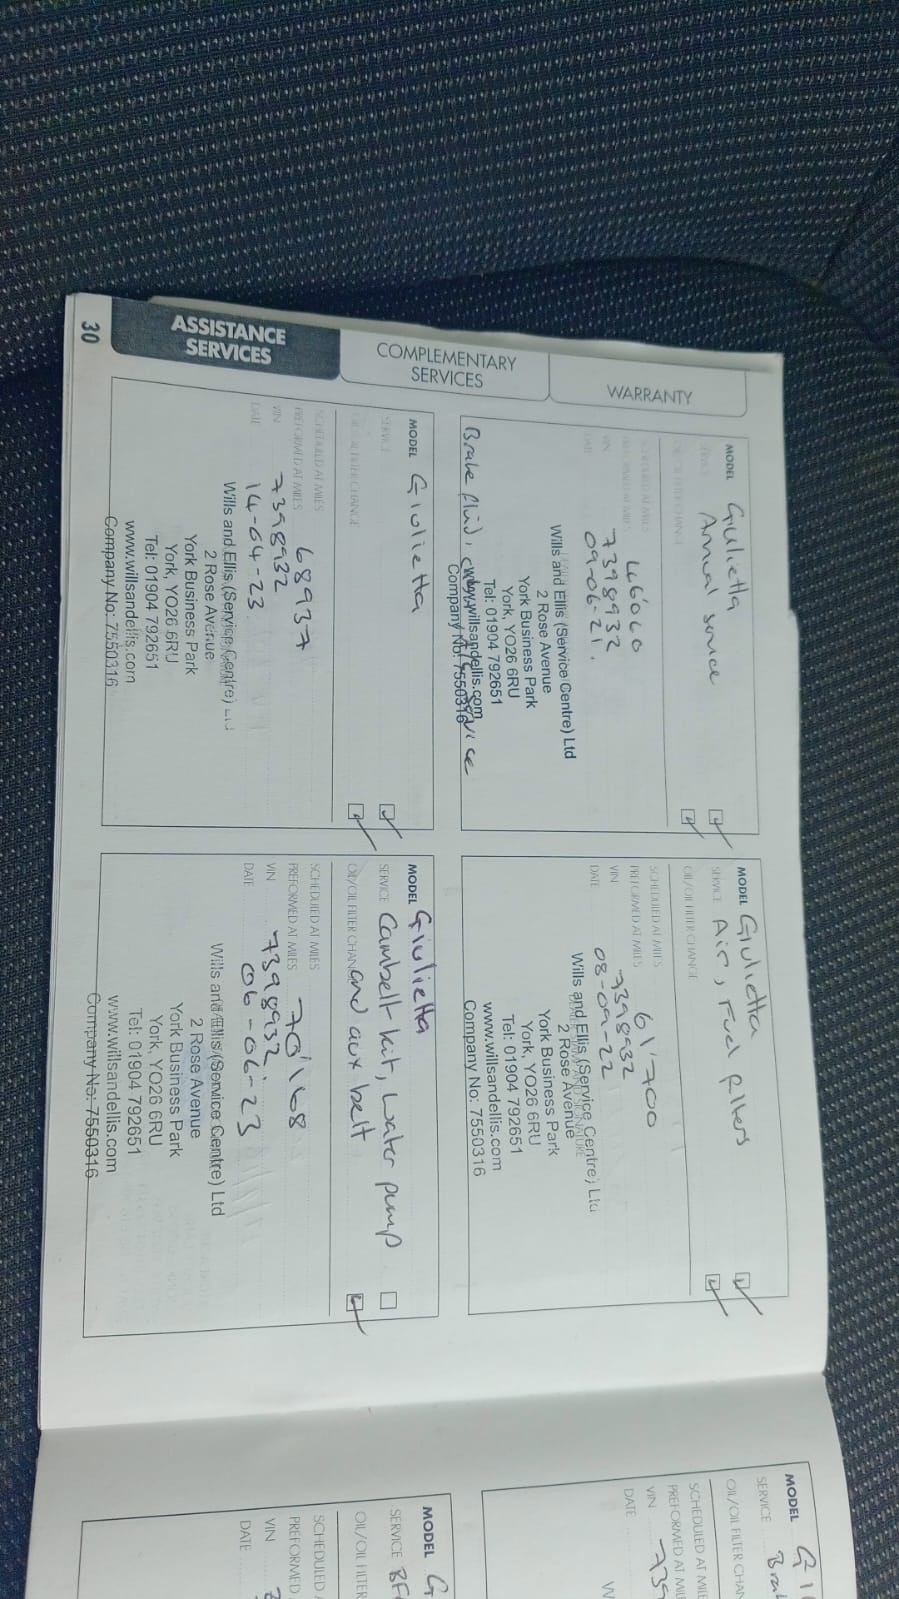 WARRANTY
COMPLEMENTARY
SERVICES
ASSISTANCE
SERVICES
30
MODEL Giulietta
SERVICE Annual service
OIL/OIL FILTER CHANGE
SCHEDULED AT MILES
PREFORMED AT MILES 46'060
VIN 7398932
DATE 09-06-21.
Wills and Ellis (Service Centre) Ltd
2 Rose Avenue
York Business Park
York, YO26 6RU
Tel: 01904 792651
www.willsandellis.com
Company No: 7550316
Brake fluid, service
MODEL Giulietta
SERVICE Air, Fuel filters
OIL/OIL FILTER CHANGE
SCHEDULED AT MILES
PREFORMED AT MILES 61'700
VIN 7398932
DATE 08-09-22
Wills and Ellis (Service Centre) Ltd
2 Rose Avenue
York Business Park
York, YO26 6RU
Tel: 01904 792651
www.willsandellis.com
Company No: 7550316
MODEL Giulietta
SERVICE
OIL/OIL FILTER CHANGE
SCHEDULED AT MILES
PREFORMED AT MILES 68937
VIN 7398932
DATE 14-04-23
Wills and Ellis (Service Centre) Ltd
2 Rose Avenue
York Business Park
York, YO26 6RU
Tel: 01904 792651
www.willsandellis.com
Company No: 7550316
MODEL Giulietta
SERVICE Cambelt kit, water pump
OIL/OIL FILTER CHAN and aux belt
SCHEDULED AT MILES
PREFORMED AT MILES 70'168
VIN 7398932
DATE 06-06-23
Wills and Ellis (Service Centre) Ltd
2 Rose Avenue
York Business Park
York, YO26 6RU
Tel: 01904 792651
www.willsandellis.com
Company No: 7550316
MODEL Gi
SERVICE Brak
OIL/OIL FILTER CHAN
SCHEDULED AT MILE
PREFORMED AT MIL
VIN 739
DATE
W
MODEL G
SERVICE BF
OIL/OIL FILTER
SCHEDULED
PREFORMED
VIN 7
DATE